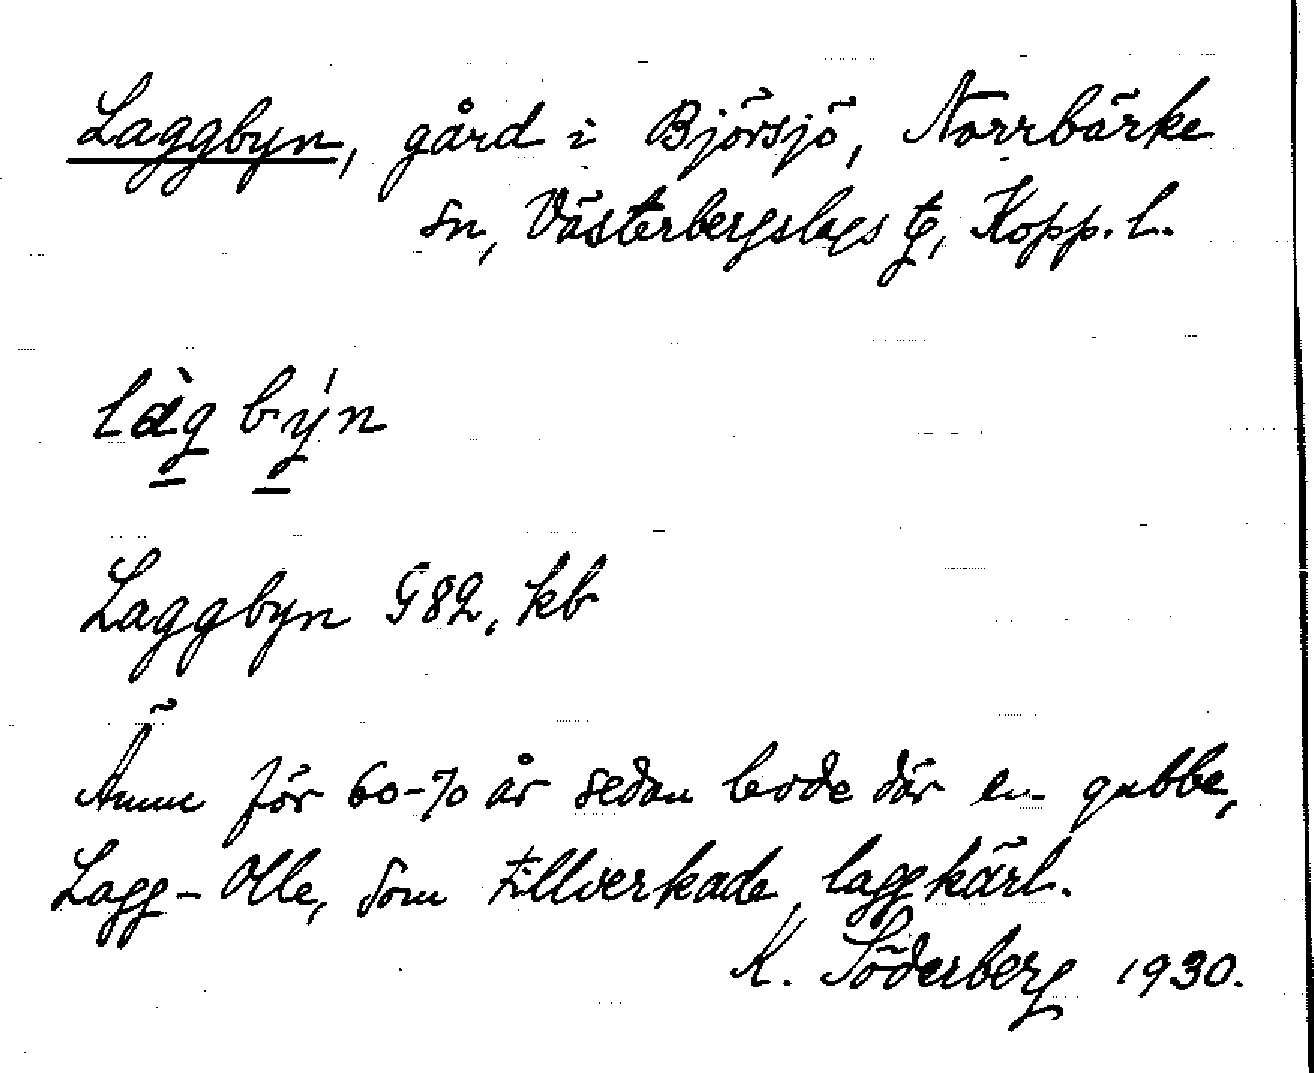 Laggbyn, gård i Björsjö, Norrbärke
sn, Västerbergslags tg, Kopp. l.
làg býn
Laggbyn G82, kb
Ännu för 60-70 år sedan bodde där en gubbe,
Lagg-Olle, som tillverkade laggkärl.
K. Söderberg 1930.